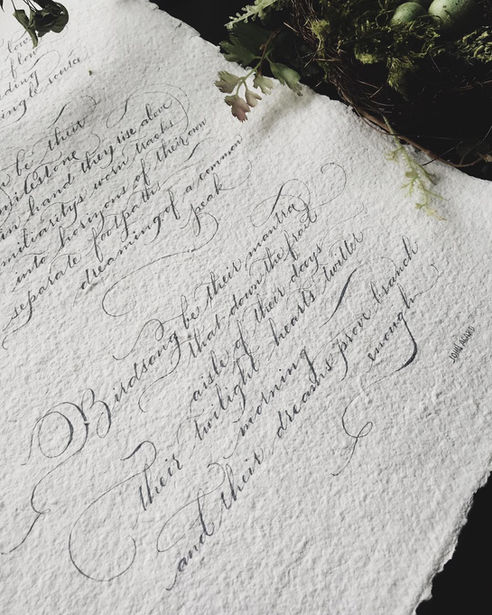 be their
milestone
in hand they rise above
miliaritys worn tracks
into horizons of their own
separate footpaths
dreaming of a common
peak
Birdsong be their mantra
that down the frost
aisle of their days
twilight hearts twitter
their morning
and their dreams prove branch
enough